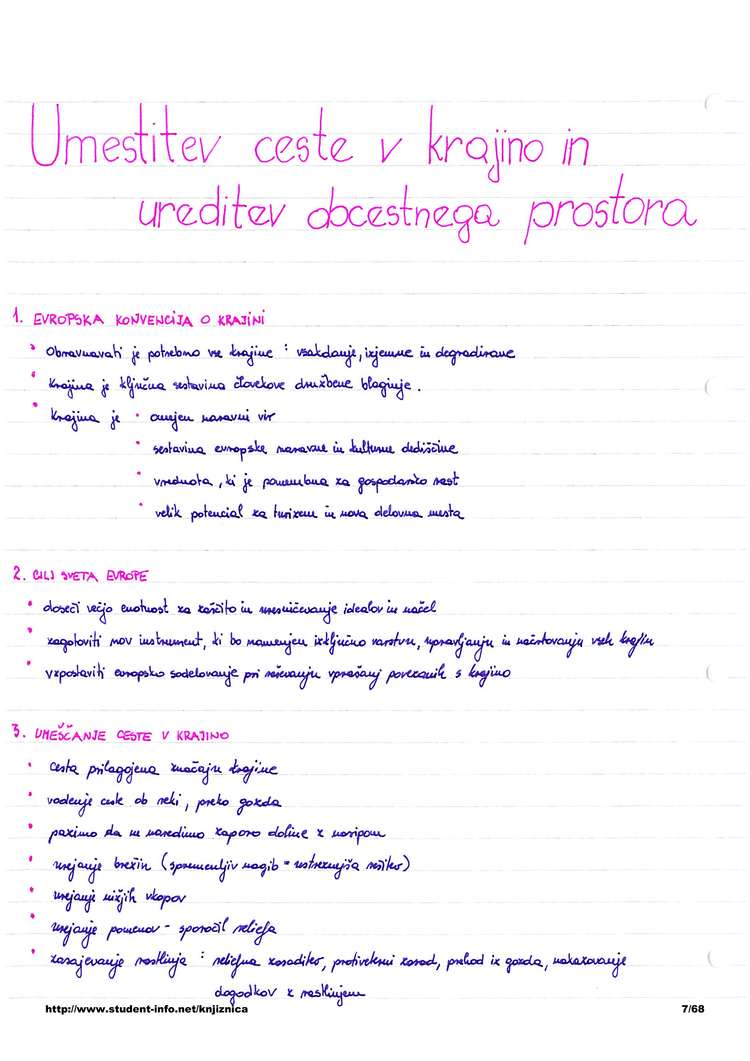 Umestitev ceste v krajino in
ureditev obcestnega prostora
1. EVROPSKA KONVENCIJA O KRAJINI
• Obravnavati je potrebno vse krajine : vsakdanje, izjemne in degradirane
• Krajina je ključna sestavina človekove družbene blaginje.
• Krajina je • omejen naravni vir
• sestavina evropske naravne in kulturne dediščine
• vrednota, ki je pomembna za gospodarsko rast
• velik potencial za turizem in nova delovna mesta
2. CILJ SVETA EVROPE
• doseči večjo enotnost za zaščito in uresničevanje idealov in načel
• zagotoviti nov instrument, ki bo namenjen izključno varstvu, upravljanju in načrtovanju vseh krajin
• vzpostaviti evropsko sodelovanje pri reševanju vprašanj povezanih s krajino
3. UMEŠČANJE CESTE V KRAJINO
• cesta prilagojena značaju krajine
• vodenje ceste ob reki, preko gozda
• pazimo da ne naredimo zaporo doline z nasipom
• urejanje brežin (spremenljiv nagib = ustreznejša rešitev)
• urejanje nižjih vkopov
• urejanje pomenov - sporočil reliefa
• zasajevanje rastlinja : reliefna zasaditev, protivetrni zasad, prehod iz gozda, nakazovanje
dogodkov z rastlinjem
http://www.student-info.net/knjiznica 7/68